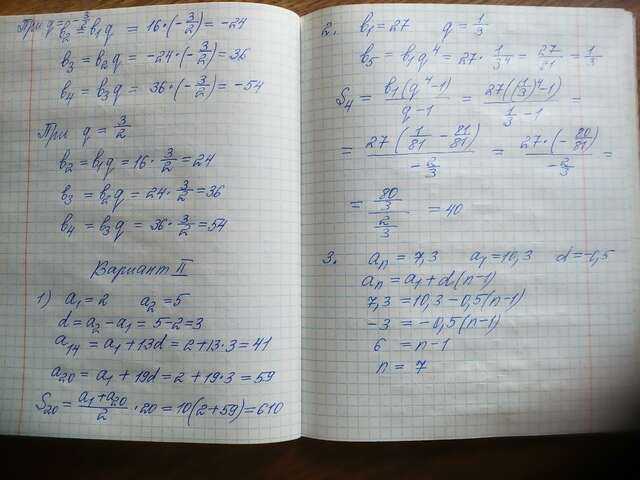 При q = -3/2
b₂ = b₁q = 16·(-3/2) = -24
b₃ = b₂q = -24·(-3/2) = 36
b₄ = b₃q = 36·(-3/2) = -54
При q = 3/2
b₂ = b₁q = 16·3/2 = 24
b₃ = b₂q = 24·3/2 = 36
b₄ = b₃q = 36·3/2 = 54
Вариант II
1) a₁ = 2 a₂ = 5
d = a₂ - a₁ = 5 - 2 = 3
a₁₄ = a₁ + 13d = 2 + 13·3 = 41
a₂₀ = a₁ + 19d = 2 + 19·3 = 59
S₂₀ = (a₁ + a₂₀)/2 · 20 = 10(2 + 59) = 610
2. b₁ = 27 q = 1/3
b₅ = b₁q⁴ = 27·1/3⁴ = 27/81 = 1/3
S₄ = b₁(q⁴ - 1)/(q - 1) = 27((1/3)⁴ - 1)/(1/3 - 1) =
= 27(1/81 - 81/81)/(-2/3) = 27·(-80/81)/(-2/3) =
= (80/3)/(2/3) = 40
3. aₙ = 7,3 a₁ = 10,3 d = -0,5
aₙ = a₁ + d(n-1)
7,3 = 10,3 - 0,5(n-1)
-3 = -0,5(n-1)
6 = n-1
n = 7